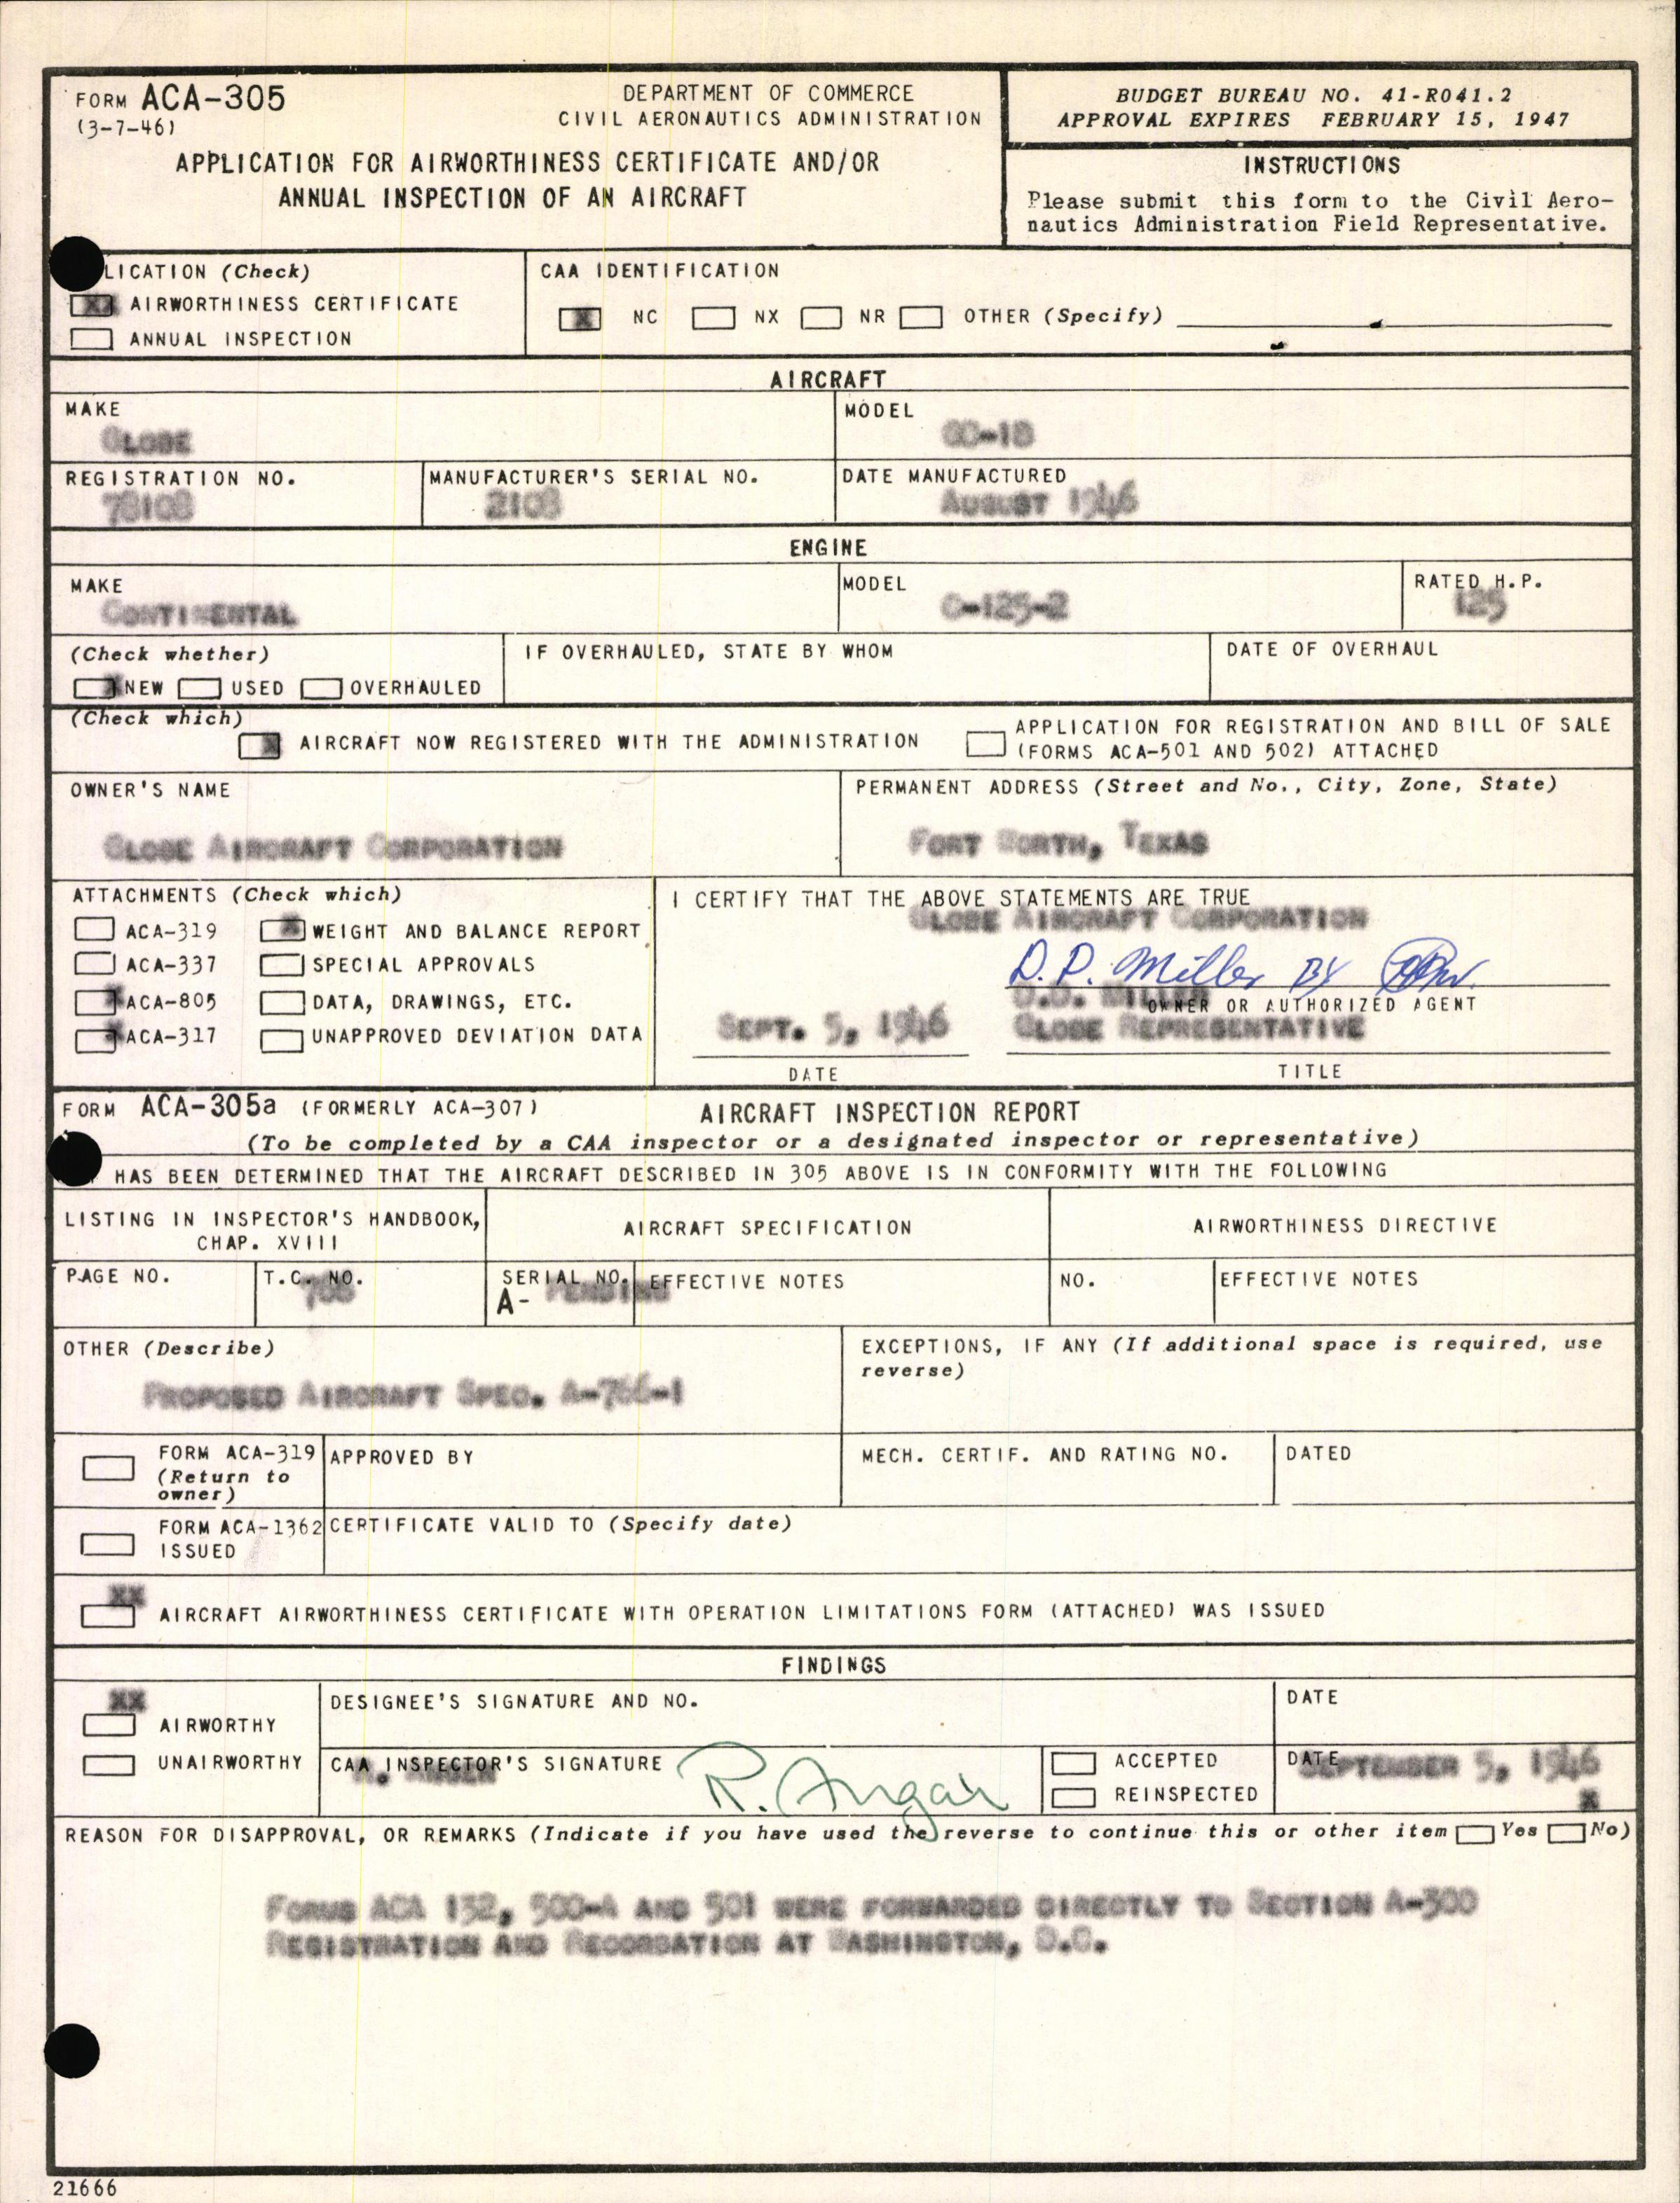 FORM ACA-305
(3-7-46)
DEPARTMENT OF COMMERCE
CIVIL AERONAUTICS ADMINISTRATION
APPLICATION FOR AIRWORTHINESS CERTIFICATE AND/OR
ANNUAL INSPECTION OF AN AIRCRAFT
BUDGET BUREAU NO. 41-R041.2
APPROVAL EXPIRES FEBRUARY 15, 1947
INSTRUCTIONS
Please submit this form to the Civil Aero-
nautics Administration Field Representative.
LICATION (Check)
XX AIRWORTHINESS CERTIFICATE
ANNUAL INSPECTION
CAA IDENTIFICATION
X NC NX NR OTHER (Specify)
AIRCRAFT
MAKE
GLOBE
MODEL
GC-1B
REGISTRATION NO.
78108
MANUFACTURER'S SERIAL NO.
2108
DATE MANUFACTURED
AUGUST 1946
ENGINE
MAKE
CONTINENTAL
MODEL
C-125-2
RATED H.P.
125
(Check whether)
X NEW USED OVERHAULED
IF OVERHAULED, STATE BY WHOM
DATE OF OVERHAUL
(Check which)
X AIRCRAFT NOW REGISTERED WITH THE ADMINISTRATION
APPLICATION FOR REGISTRATION AND BILL OF SALE
(FORMS ACA-501 AND 502) ATTACHED
OWNER'S NAME
GLOBE AIRCRAFT CORPORATION
PERMANENT ADDRESS (Street and No., City, Zone, State)
FORT WORTH, TEXAS
ATTACHMENTS (Check which)
ACA-319 X WEIGHT AND BALANCE REPORT
ACA-337 SPECIAL APPROVALS
X ACA-805 DATA, DRAWINGS, ETC.
X ACA-317 UNAPPROVED DEVIATION DATA
I CERTIFY THAT THE ABOVE STATEMENTS ARE TRUE
GLOBE AIRCRAFT CORPORATION
D.P. Miller BY
MILLER
OWNER OR AUTHORIZED AGENT
SEPT. 5, 1946 GLOBE REPRESENTATIVE
DATE TITLE
FORM ACA-305a (FORMERLY ACA-307) AIRCRAFT INSPECTION REPORT
(To be completed by a CAA inspector or a designated inspector or representative)
HAS BEEN DETERMINED THAT THE AIRCRAFT DESCRIBED IN 305 ABOVE IS IN CONFORMITY WITH THE FOLLOWING
LISTING IN INSPECTOR'S HANDBOOK,
CHAP. XVIII
AIRCRAFT SPECIFICATION
AIRWORTHINESS DIRECTIVE
PAGE NO.
T.C. NO.
766
SERIAL NO.
A- PENDING
EFFECTIVE NOTES
NO.
EFFECTIVE NOTES
OTHER (Describe)
PROPOSED AIRCRAFT SPEC. A-766-1
EXCEPTIONS, IF ANY (If additional space is required, use
reverse)
FORM ACA-319
(Return to
owner)
APPROVED BY
MECH. CERTIF. AND RATING NO.
DATED
FORM ACA-1362
ISSUED
CERTIFICATE VALID TO (Specify date)
XX
AIRCRAFT AIRWORTHINESS CERTIFICATE WITH OPERATION LIMITATIONS FORM (ATTACHED) WAS ISSUED
FINDINGS
XX
AIRWORTHY
UNAIRWORTHY
DESIGNEE'S SIGNATURE AND NO.
DATE
CAA INSPECTOR'S SIGNATURE
R. Angar
ACCEPTED
REINSPECTED
DATE
SEPTEMBER 5, 1946
X
REASON FOR DISAPPROVAL, OR REMARKS (Indicate if you have used the reverse to continue this or other item Yes No)
FORMS ACA 132, 500-A AND 501 WERE FORWARDED DIRECTLY TO SECTION A-300
REGISTRATION AND RECORDATION AT WASHINGTON, D.C.
21666